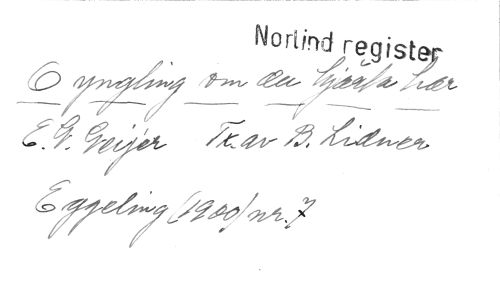 Norlind register
O yngling om du hjärta har
E. G. Geijer Tr. av B. Lidner
Eggeling (1900) nr. 7